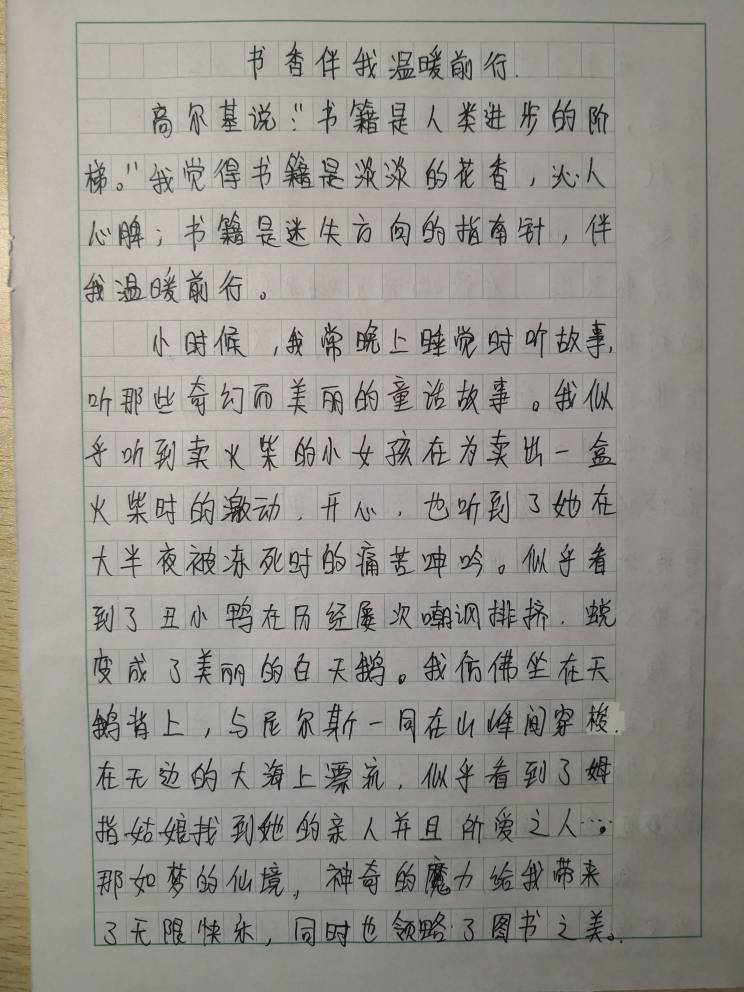 书香伴我温暖前行.
高尔基说:"书籍是人类进步的阶
梯。"我觉得书籍是淡淡的花香,沁人
心脾;书籍是迷失方向的指南针,伴
我温暖前行。
小时候,我常晚上睡觉时听故事,
听那些奇幻而美丽的童话故事。我似
乎听到卖火柴的小女孩在为卖出一盒
火柴时的激动、开心,也听到了她在
大半夜被冻死时的痛苦呻吟。似乎看
到了丑小鸭在历经屡次嘲讽排挤,蜕
变成了美丽的白天鹅。我仿佛坐在天
鹅背上,与尼尔斯一同在山峰间穿梭.
在无边的大海上漂流,似乎看到了姆
指姑娘找到她的亲人并且所爱之人…。
那如梦的仙境,神奇的魔力给我带来
了无限快乐,同时也领略了图书之美。